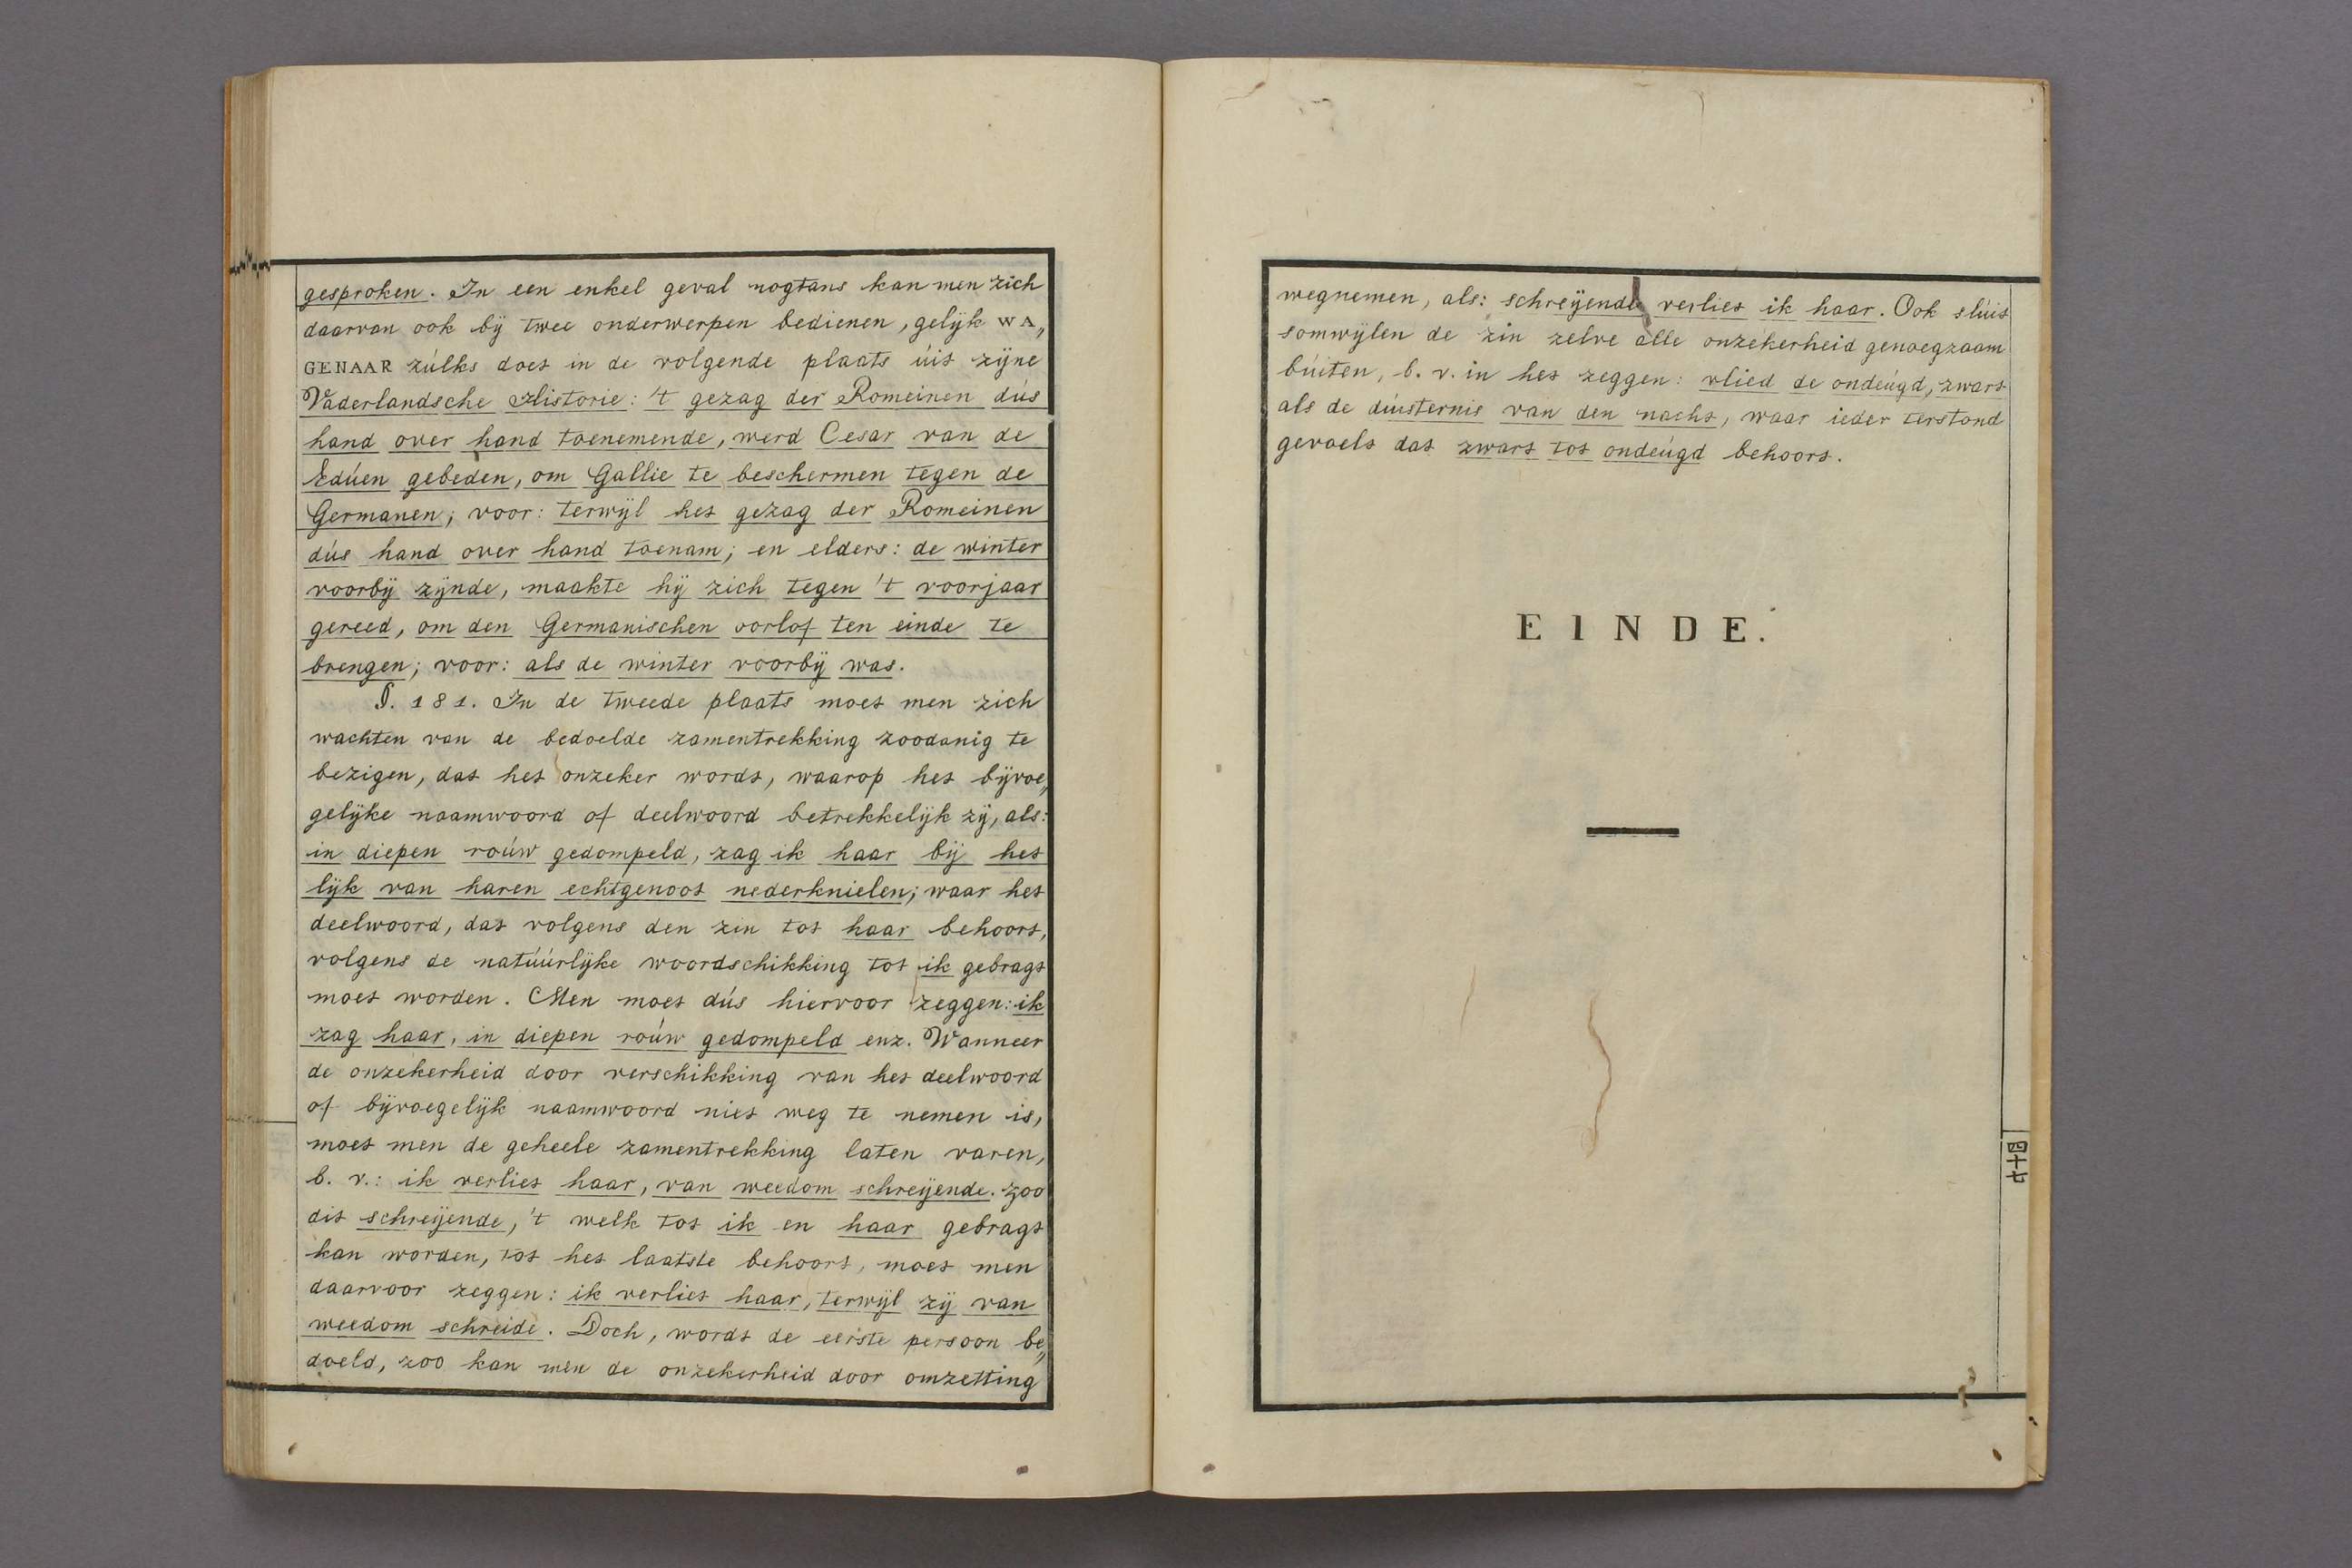 gesproken. In een enkel geval nogtans kan men zich
daarvan ook bij twee onderwerpen bedienen, gelijk WA„
GENAAR zúlks doet in de volgende plaats úit zijne
Vaderlandsche Historie: 't gezag der Romeinen dús
hand over hand toenemende, werd Cesar van de
Edúen gebeden, om Gallie te beschermen tegen de
Germanen; voor: terwijl het gezag der Romeinen
dús hand over hand toenam; en elders: de winter
voorbij zijnde, maakte hij zich tegen 't voorjaar
gereed, om den Germanischen oorlof ten einde te
brengen; voor: als de winter voorbij was.
§. 181. In de tweede plaats moet men zich
wachten van de bedoelde zamentrekking zoodanig te
bezigen, dat het onzeker wordt, waarop het bijvoe„
gelijke naamwoord of deelwoord betrekkelijk zij, als:
in diepen roúw gedompeld, zag ik haar bij het
lijk van haren echtgenoot nederknielen; waar het
deelwoord, dat volgens den zin tot haar behoort,
volgens de natúúrlijke woordschikking tot ik gebragt
moet worden. Men moet dús hiervoor zeggen: ik
zag haar, in diepen roúw gedompeld enz. Wanneer
de onzekerheid door verschikking van het deelwoord
of bijvoegelijk naamwoord niet weg te nemen is,
moet men de geheele zamentrekking laten varen,
b. v.: ik verliet haar, van weedom schreijende. Zoo
dit schreijende, 't welk tot ik en haar gebragt
kan worden, tot het laatste behoort, moet men
daarvoor zeggen: ik verliet haar, terwijl zij van
weedom schreide. Doch, wordt de eerste persoon be„
doeld, zoo kan men de onzekerheid door omzetting
wegnemen, als: schreijende verliet ik haar. Ook slúit
somwijlen de zin zelve alle onzekerheid genoegzaam
búiten, b. v. in het zeggen: vlied de ondeúgd, zwart
als de dúisternis van den nacht, waar ieder terstond
gevoelt dat zwart tot ondeúgd behoort.
EINDE.